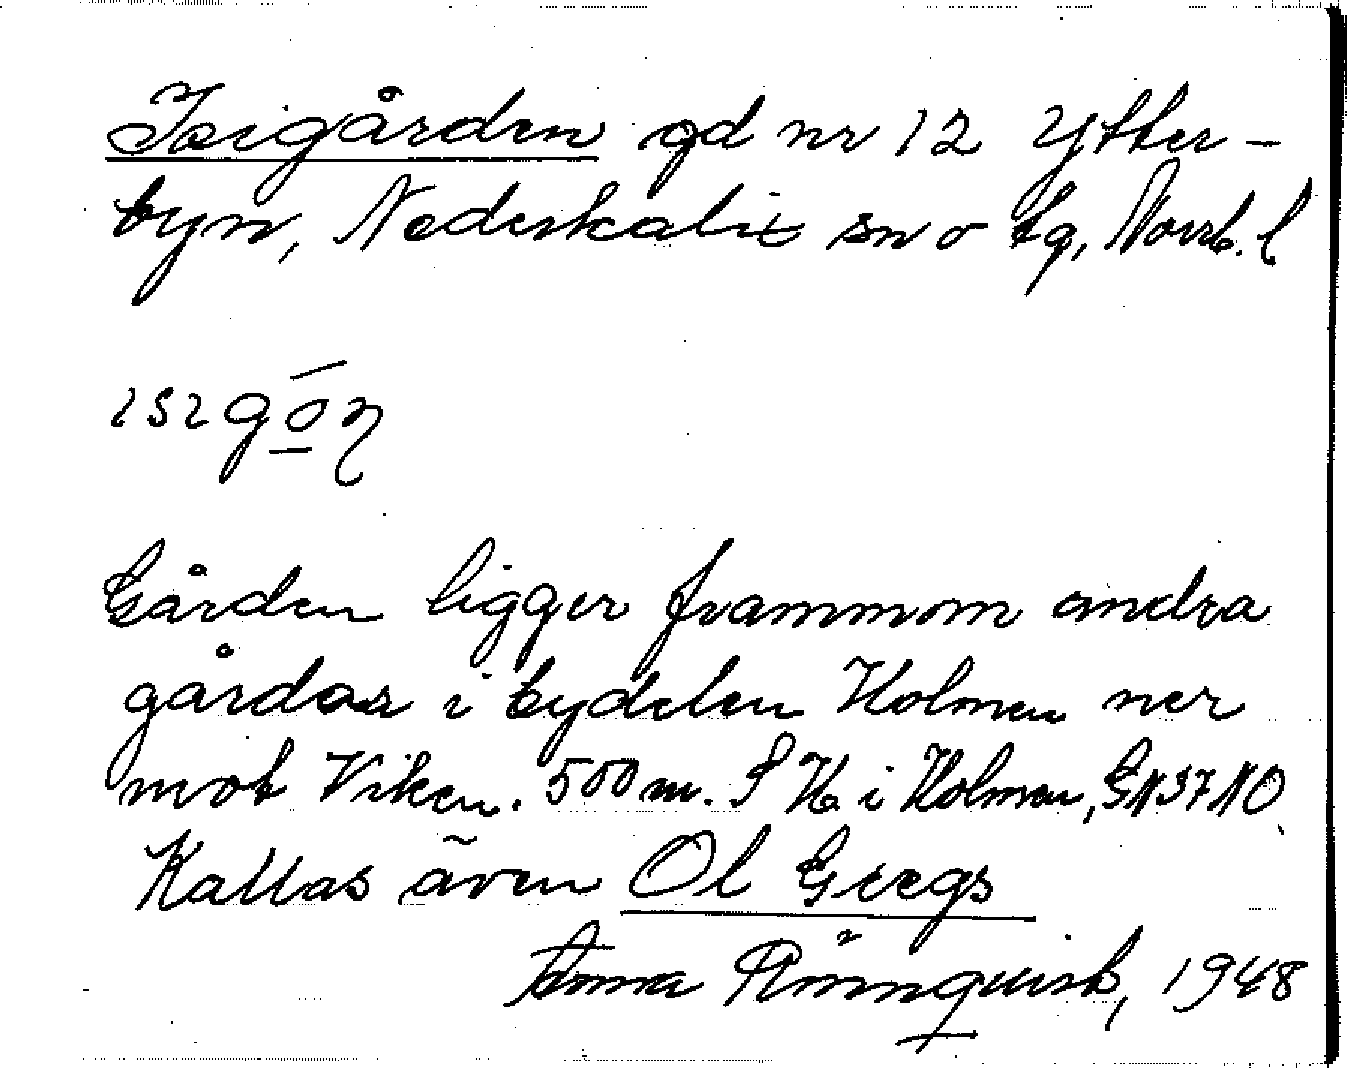 Isigården gd nr 12 Ytter-
byn, Nederkalix sn o tg, Norrb. l
Gården ligger frammom andra
gårdar i bydelen Holmen ner
mot Viken. 500 m. S K. i Holmen, GN37NO.
Kallas även Ol Gregs
Anna Rönnquist, 1948